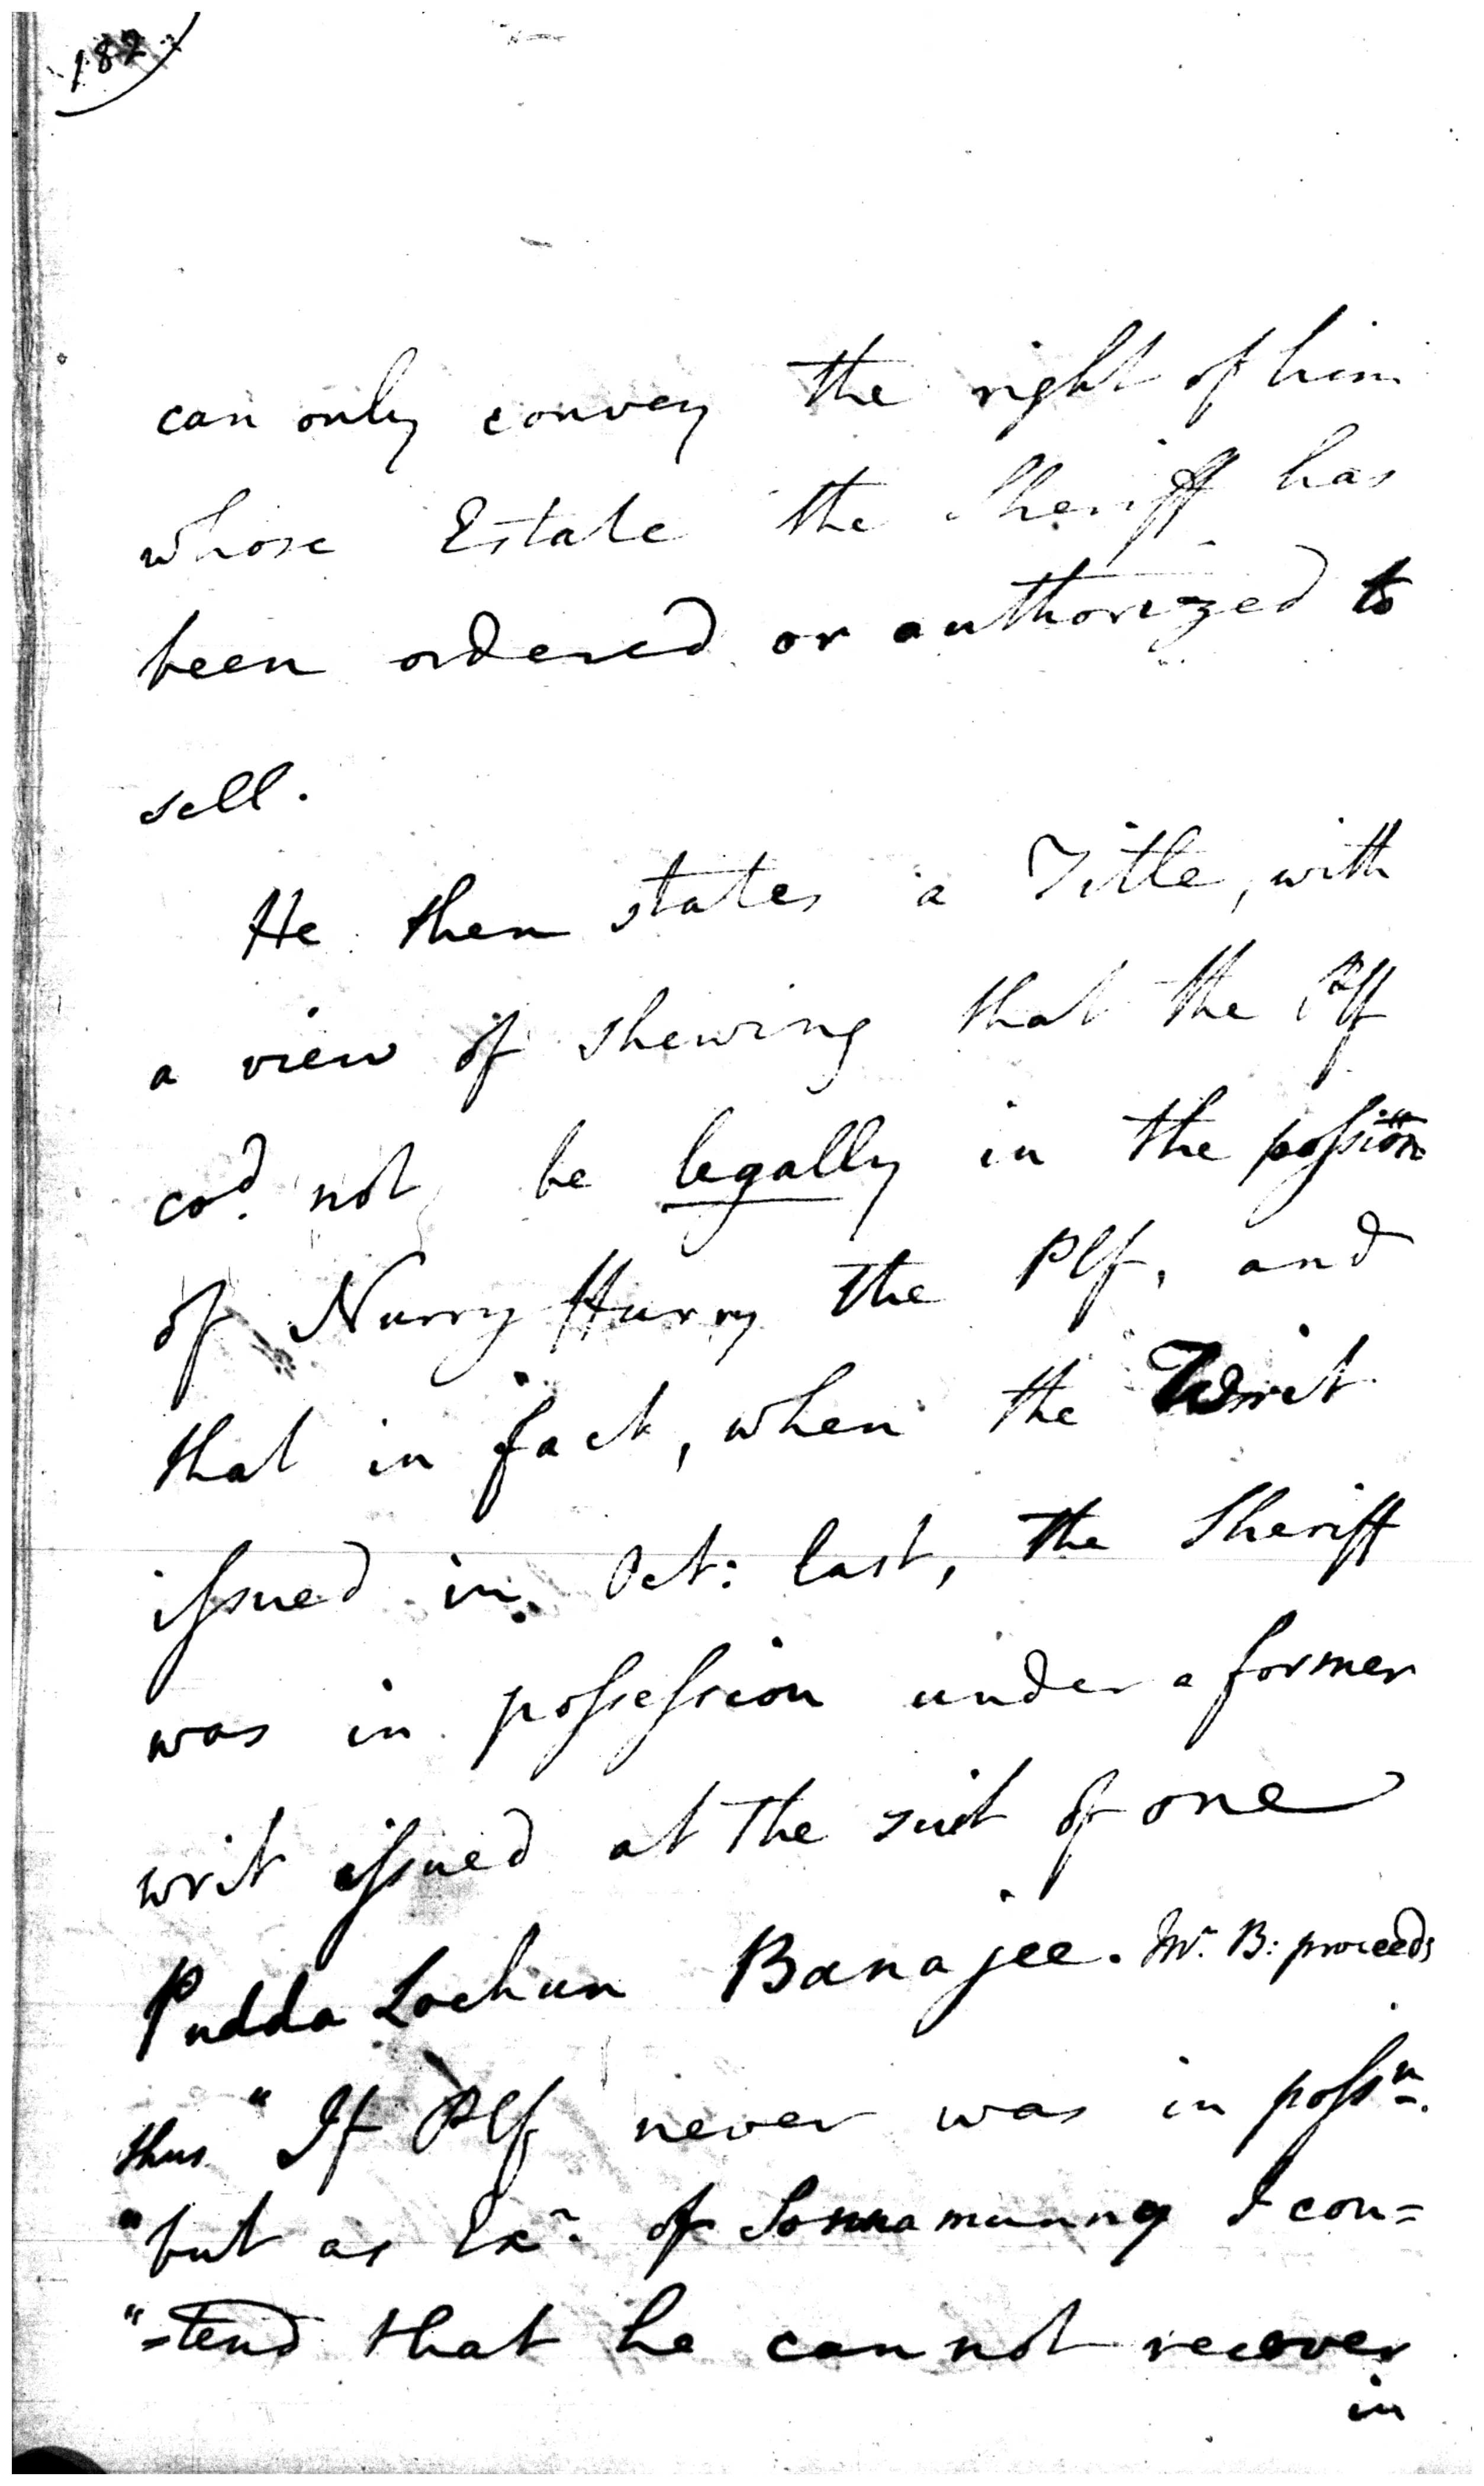 182
can only convey the right of him
whose Estate the Sheriff has
been ordered or authorized to
sell.
He then states a Title, with
a view of shewing that the Plf
cod. not be legally in the possion
of Nurry Hurry the Plf, and
that in fact, when the Writ
issued in Oct: last, the Sheriff
was in possession under a former
writ issued at the suit of one
Pudda Lochun Banajee. Mr. B: proceeds
thus "If Plf never was in possn.
"but as Exr. of Sonnamunny I con=
"=tend that he cannot recover
in